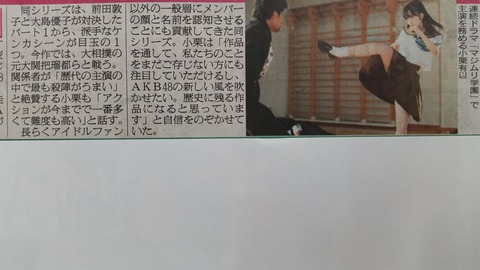 同シリーズは、前田敦
子と大島優子が対決した
パート1から、派手なケ
ンカシーンが目玉の1
つ。今作では、大相撲の
元大関把瑠都らと戦う。
関係者が「歴代の主演の
中で最も殺陣がうまい」
と絶賛する小栗も「アク
ションが今までで一番多
くて難度も高い」と話す。
長らくアイドルファン
以外の一般層にメンバー
の顔と名前を認知させる
ことにも貢献してきた同
シリーズ。小栗は「作品
を通して、私たちのこと
をまだご存じない方にも
注目していただけるし、
AKB48の新しい風を
吹かせたい。歴史に残る
作品になると思っていま
す」と自信をのぞかせて
いた。
連続ドラマ「マジムリ学園」で
主演を務める小栗有以